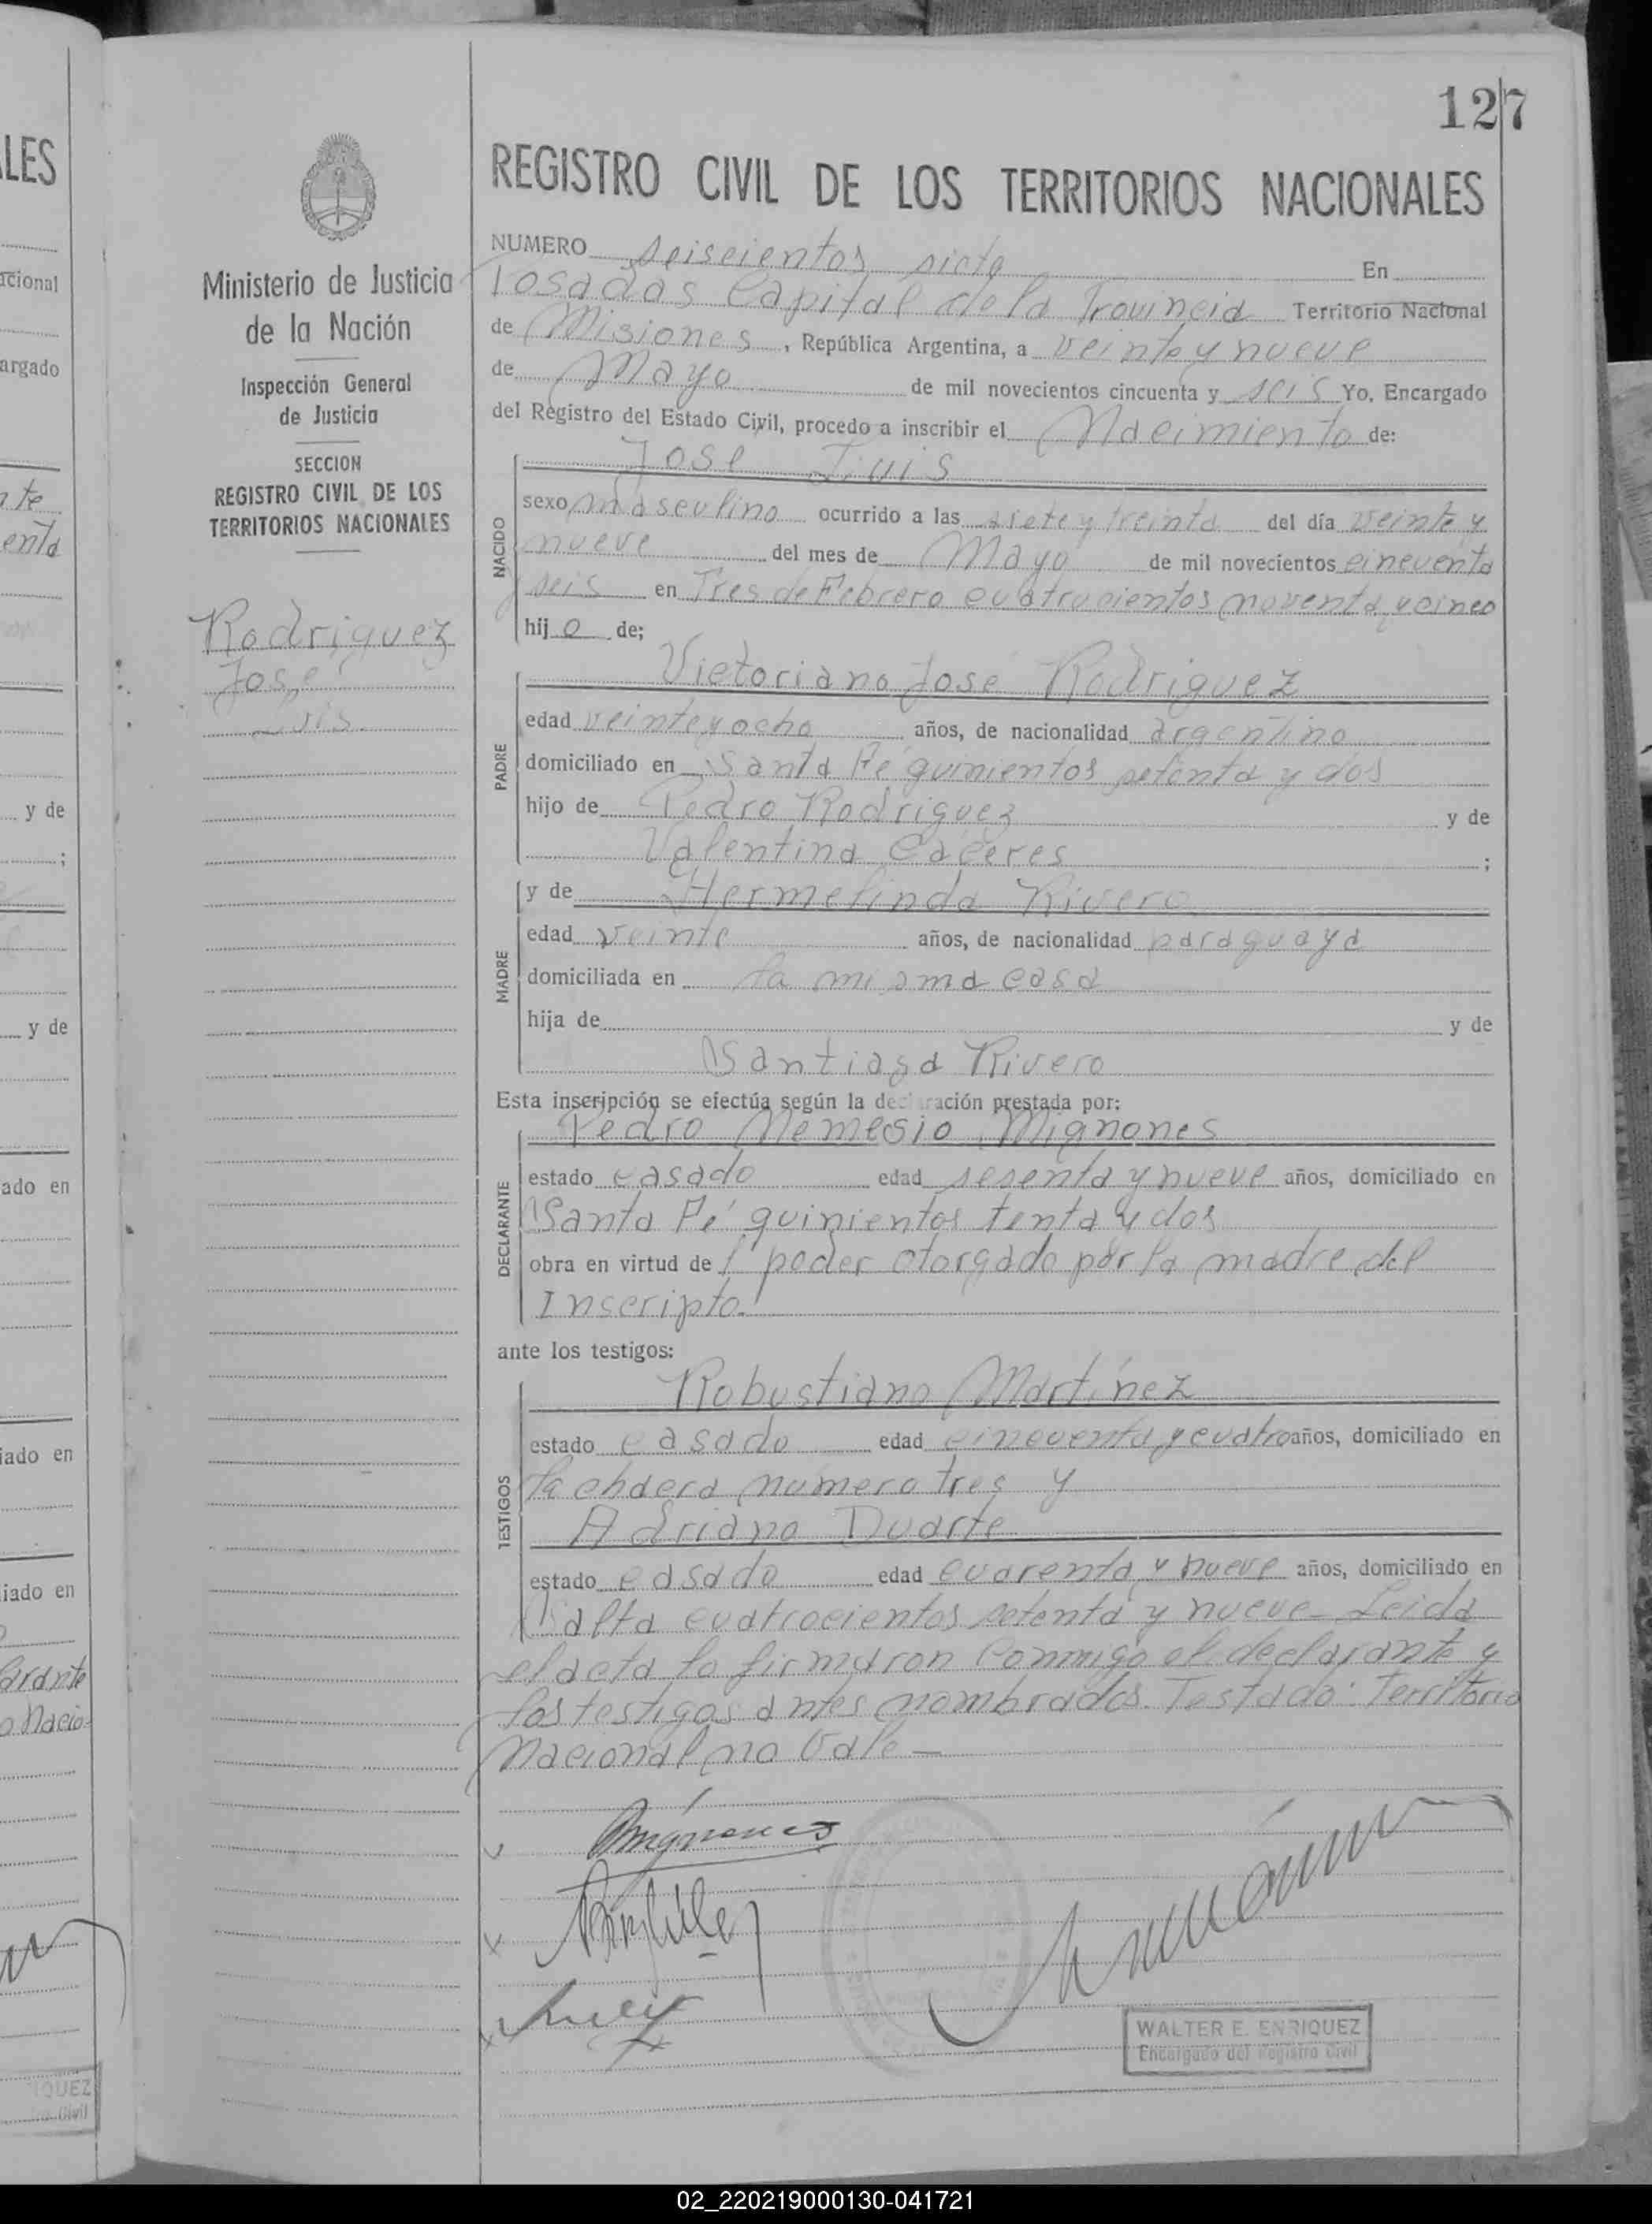 127
REGISTRO CIVIL DE LOS TERRITORIOS NACIONALES
Ministerio de Justicia
de la Nación
Inspección General
de Justicia
SECCION
REGISTRO CIVIL DE LOS
TERRITORIOS NACIONALES
Rodriguez
José
Luis
NUMERO seiscientos siete En
Posadas Capital de la Provincia Territorio Nacional
de Misiones, República Argentina, a veinte y nueve
de Mayo de mil novecientos cincuenta y seis Yo, Encargado
del Registro del Estado Civil, procedo a inscribir el Nacimiento de:
NACIDO
José Luis
sexo masculino ocurrido a las siete y treinta del día veinte y
nueve del mes de Mayo de mil novecientos cincuenta
y seis en Tres de Febrero cuatrocientos noventa y cinco
hijo de;
PADRE
Victoriano José Rodriguez
edad veinte y ocho años, de nacionalidad argentino
domiciliado en Santa Fé quinientos setenta y dos
hijo de Pedro Rodriguez y de
Valentina Cáceres ;
MADRE
y de Hermelinda Rivero
edad veinte años, de nacionalidad paraguaya
domiciliada en la misma casa
hija de y de
Santiaga Rivero
Esta inscripción se efectúa según la declaración prestada por:
DECLARANTE
Pedro Nemesio Mignones
estado casado edad sesenta y nueve años, domiciliado en
Santa Fé quinientos tenta y dos
obra en virtud de poder otorgado por la madre del
Inscripto.
ante los testigos:
TESTIGOS
Robustiano Martínez
estado casado edad cincuenta y cuatro años, domiciliado en
la chacra número tres y
Adriano Duarte
estado casado edad cuarenta y nueve años, domiciliado en
Salta cuatrocientos setenta y nueve- Leida
el acta la firmaron conmigo el declarante y
los testigos antes nombrados. Testado: Territorio
Nacional no vale-
Mignones
WALTER E. ENRIQUEZ
Encargado del Registro Civil
02_220219000130-041721